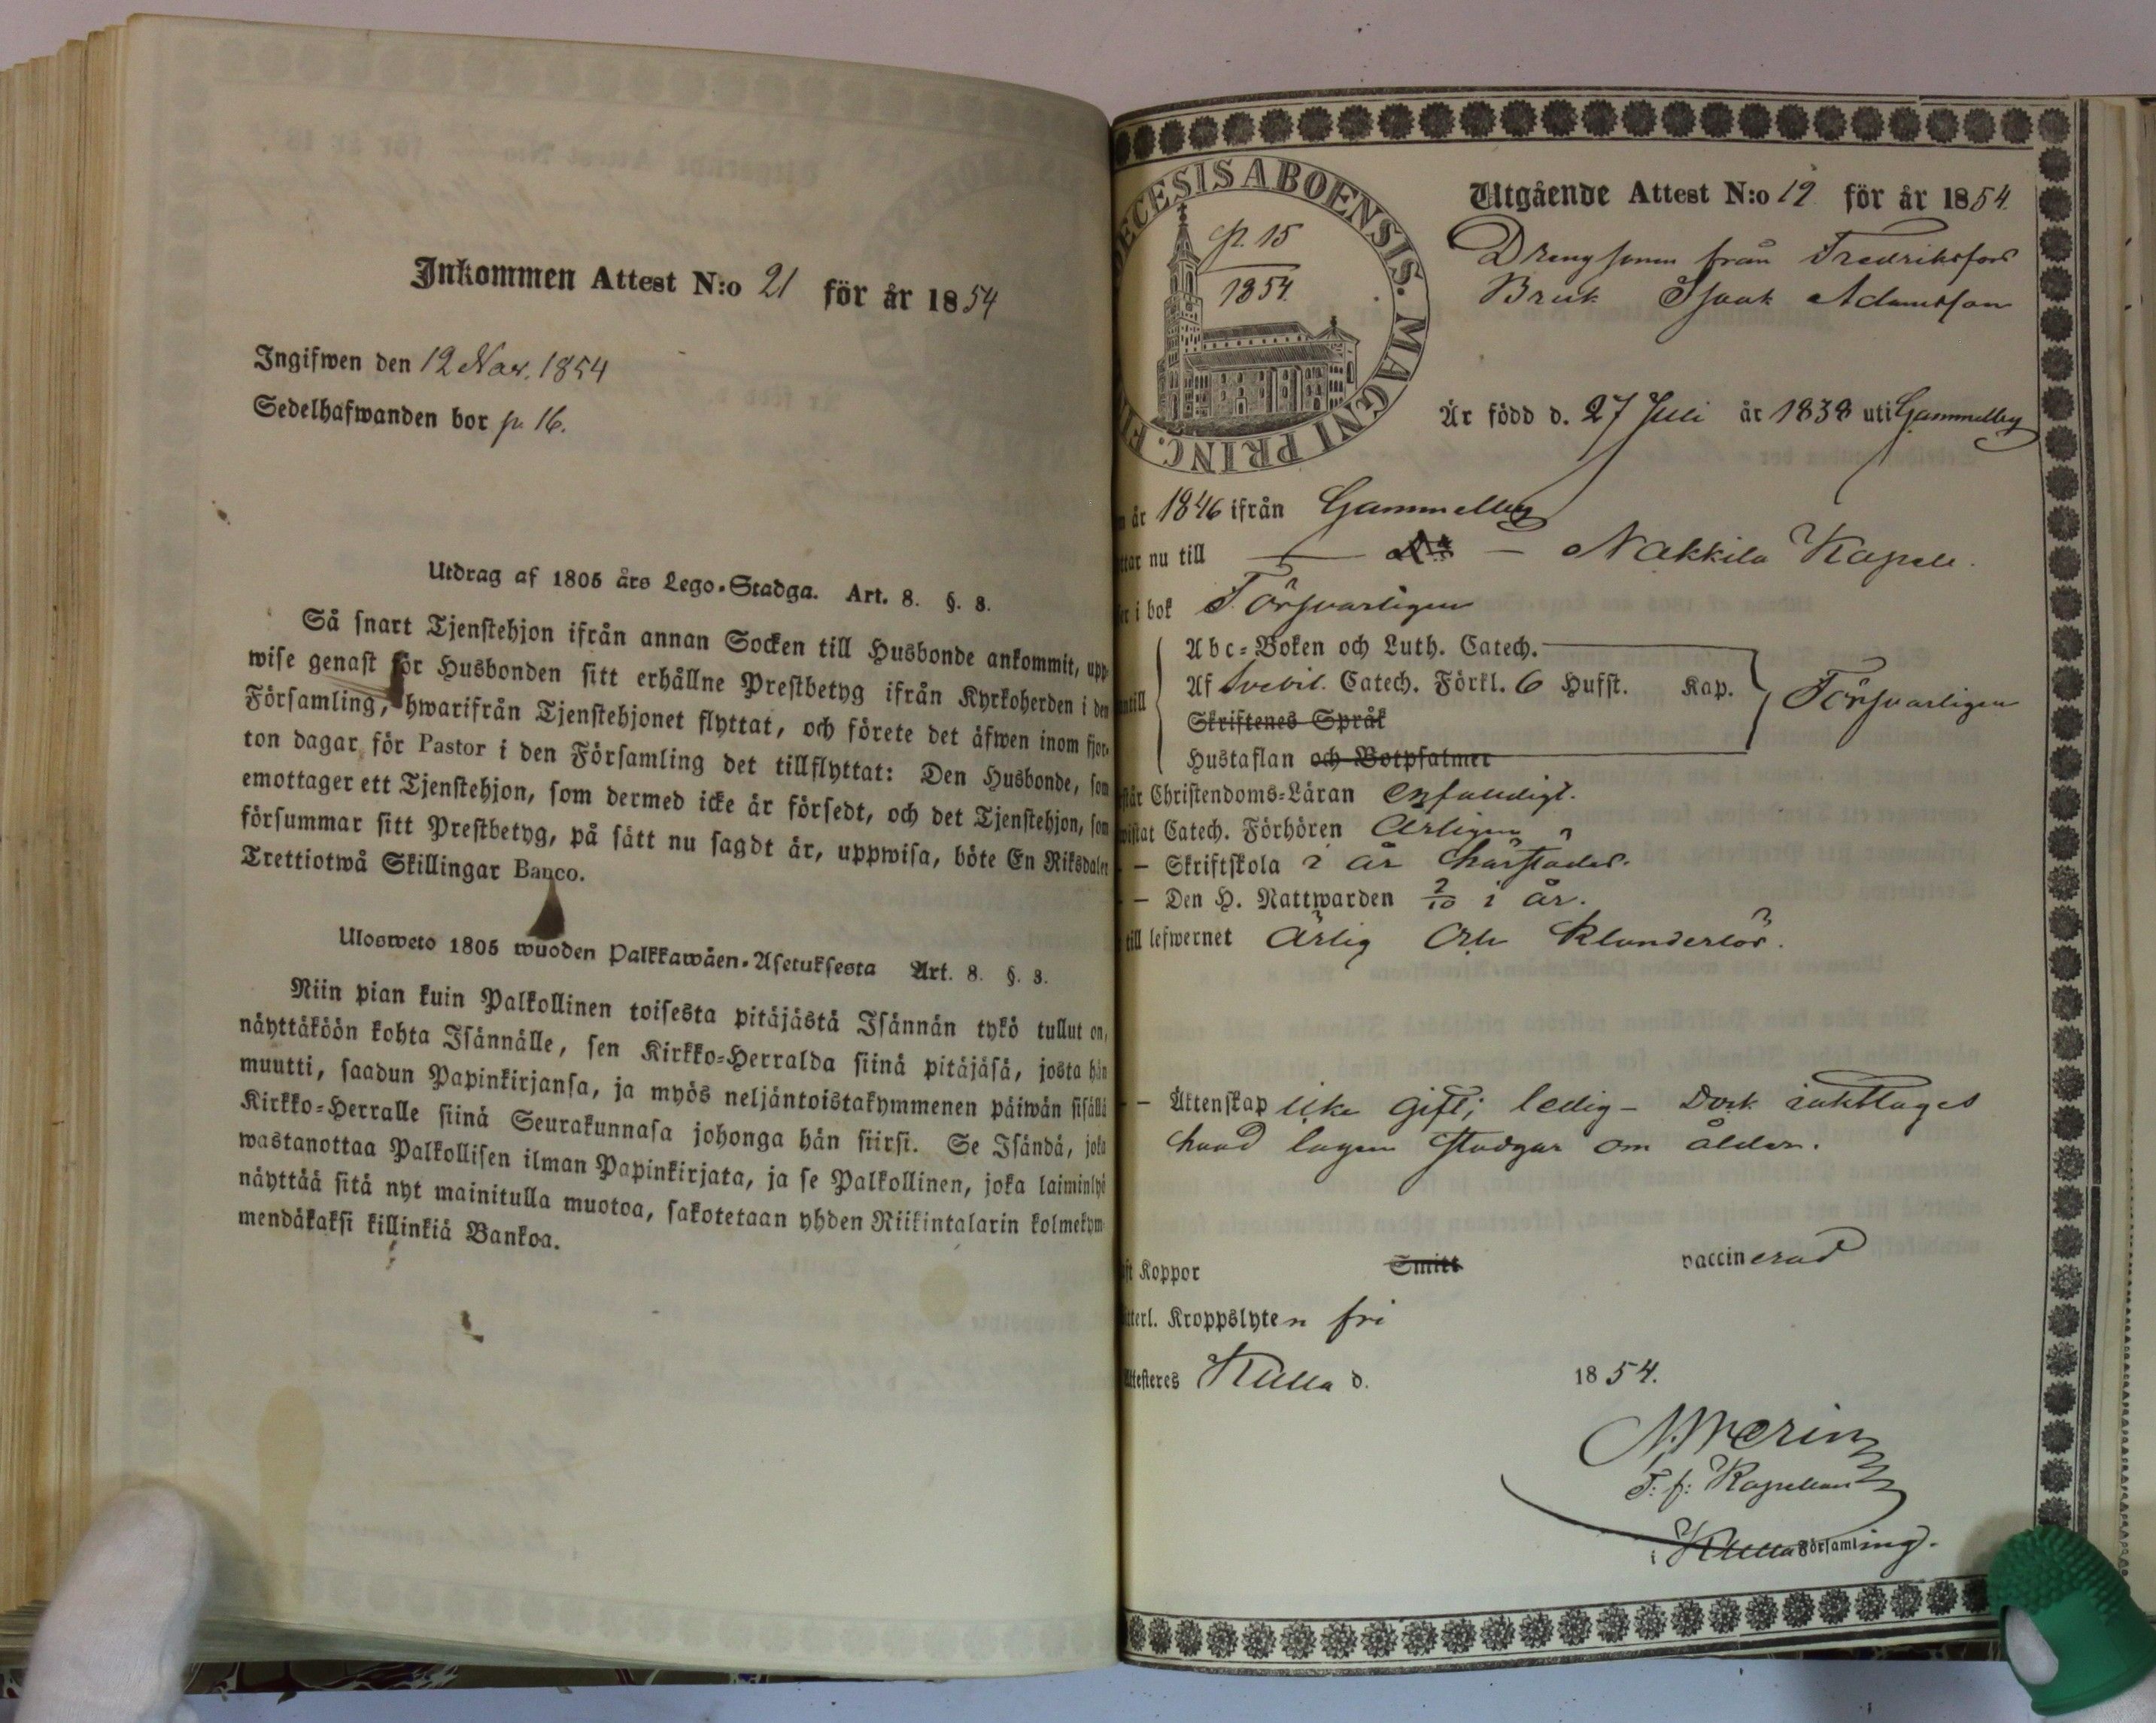 Inkommen Attest N:o 21 för år 1854
Ingifwen den 12 Nov. 1854
Sedelhafwanden bor p. 16.
Utdrag af 1805 års Lego-Stadga. Art. 8. §. 8.
Så snart Tjenstehjon ifrån annan Socken till Husbonde ankommit, upp-
wise genast för Husbonden sitt erhållne Prestbetyg ifrån Kyrkoherden i den
Församling, hwarifrån Tjenstehjonet flyttat, och förete det äfwen inom fjor-
ton dagar för Pastor i den Församling det tillflyttat: Den Husbonde, som
emottager ett Tjenstehjon, som dermed icke är försedt, och det Tjenstehjon, som
försummar sitt Prestbetyg, på sätt nu sagdt är, uppwisa, böte En Riksdaler
Trettiotwå Skillingar Banco.
Ulosweto 1805 wuoden Palkkawäen-Asetuksesta Art. 8. §. 8.
Niin pian kuin Palkollinen toisesta pitäjästä Isännän tykö tullut on,
näyttäköön kohta Isännälle, sen Kirkko-Herralda siinä pitäjäsä, josta hän
muutti, saadun Papinkirjansa, ja myös neljäntoistakymmenen päiwän sisällä
Kirkko-Herralle siinä Seurakunnasa johonga hän siirsi. Se Isändä, joka
wastanottaa Palkollisen ilman Papinkirjata, ja se Palkollinen, joka laiminlyö
näyttää sitä nyt mainitulla muotoa, sakotetaan yhden Riikintalarin kolmekym-
mendäkaksi killinkiä Bankoa.
ECESIS ABOENSIS. MAGNI PRINC. FI
p. 15
1854.
Utgående Attest N:o 19 för år 1854.
Drengsonen från Fredriksfors
Bruk Isaak Adamsson
Är född d. 27 Juli år 1838 uti Gammelby
år 1846 ifrån Gammelby
ttar nu till — — Nakkila Kapell.
i bok Försvarligen
Abc-Boken och Luth. Catech.
antill Af Svebil. Catech. Förkl. 6 Hufst. Kap. Försvarligen
Skriftenes Språk
Hustaflan och Botpsalmer
står Christendoms-Läran enfaldigt.
wistat Catech. Förhören Årligen
— Skriftskola i år härstädes.
— Den H. Nattwarden 2/10 i år.
till lefwernet Ärlig och klanderlös.
— Äktenskap icke gift; ledig — Dock iakttages
hvad lagen stadgar om ålder.
ft Koppor Smitt vaccinerad
tterl. Kroppslyten fri
Attesteres Kulla d. 1854.
N. Merin
T. f. Kapellan
i Kulla Församling.